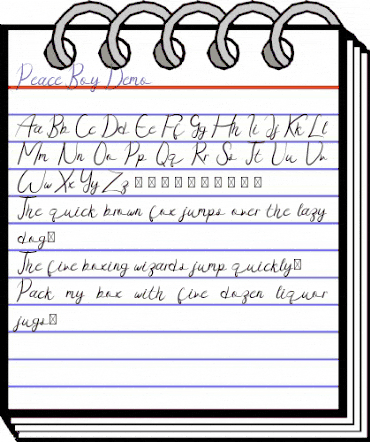 Peace Boy Demo
Aa Bb Cc Dd Ee Ff Gg Hh Ii Jj Kk Ll
Mm Nn Oo Pp Qq Rr Ss Tt Uu Vv
Ww Xx Yy Zz □ □ □ □ □ □ □ □ □ □
The quick brown fox jumps over the lazy
dog□
The five boxing wizards jump quickly□
Pack my box with five dozen liquor
jugs□